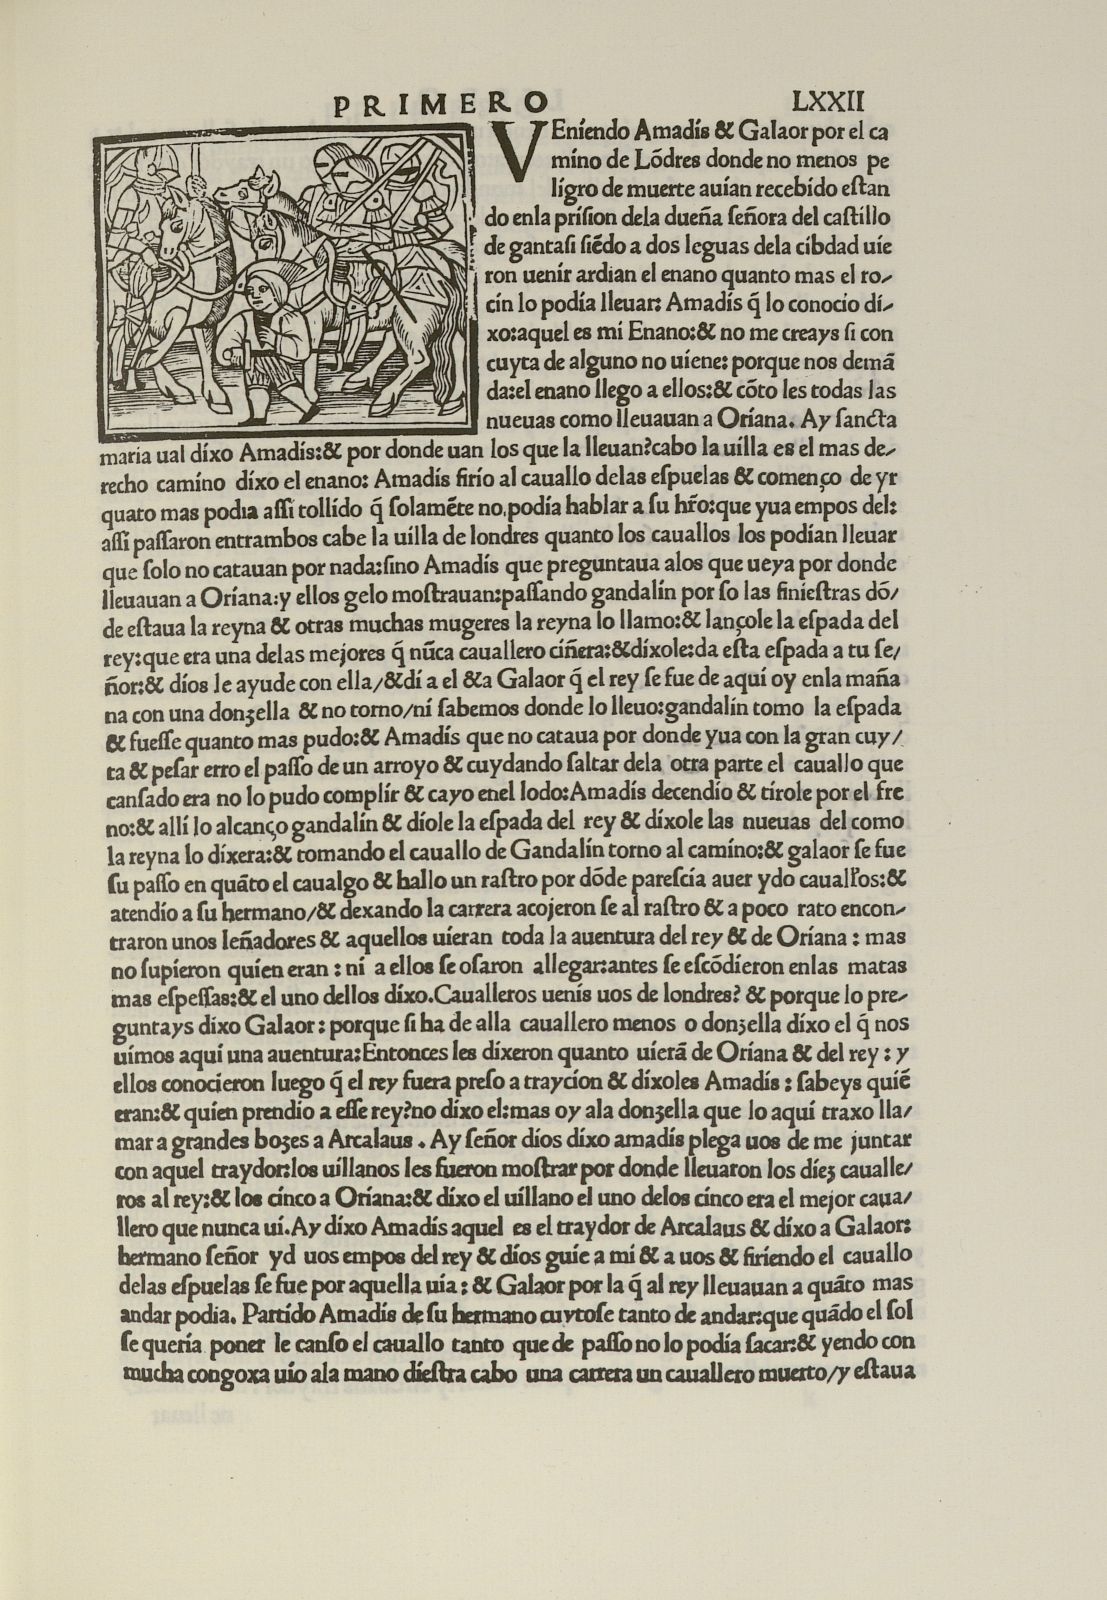 PRIMERO LXXII
VEniendo Amadis & Galaor por el ca
mino de Lōdres donde no menos pe
ligro de muerte auian recebido eſtan
do enla priſion dela dueña ſeñora del caſtillo
de gantaſi ſiēdo a dos leguas dela cibdad uie
ron uenir ardian el enano quanto mas el ro-
cin lo podia lleuar: Amadis q̄ lo conocio di-
xo:aquel es mi Enano:& no me creays ſi con
cuyta de alguno no uiene: porque nos demā
da:el enano llego a ellos:& cōto les todas las
nueuas como lleuauan a Oriana. Ay ſancta
maria ual dixo Amadis:& por donde uan los que la lleuan?cabo la uilla es el mas de-
recho camino dixo el enano: Amadis firio al cauallo delas eſpuelas & començo de yr
quato mas podia aſſi tollido q̄ ſolamēte no podia hablar a ſu hr̄o:que yua empos del:
aſſi paſſaron entrambos cabe la uilla de londres quanto los cauallos los podian lleuar
que ſolo no catauan por nada:ſino Amadis que preguntaua alos que ueya por donde
lleuauan a Oriana:y ellos gelo moſtrauan:paſſando gandalin por ſo las finieſtras dō/
de eſtaua la reyna & otras muchas mugeres la reyna lo llamo:& lançole la eſpada del
rey:que era una delas mejores q̄ nūca cauallero ciñera:&dixole:da eſta eſpada a tu ſe/
ñor:& dios le ayude con ella/&di a el &a Galaor q̄ el rey ſe fue de aqui oy enla maña
na con una donzella & no torno/ni ſabemos donde lo lleuo:gandalin tomo la eſpada
& fueſſe quanto mas pudo:& Amadis que no cataua por donde yua con la gran cuy/
ta & peſar erro el paſſo de un arroyo & cuydando ſaltar dela otra parte el cauallo que
canſado era no lo pudo complir & cayo enel lodo:Amadis decendio & tirole por el fre
no:& alli lo alcanço gandalin & diole la eſpada del rey & dixole las nueuas del como
la reyna lo dixera:& tomando el cauallo de Gandalin torno al camino:& galaor ſe fue
ſu paſſo en quāto el caualgo & hallo un raſtro por dōde pareſcia auer ydo cauall'os:&
atendio a ſu hermano/& dexando la carrera acojeron ſe al raſtro & a poco rato encon-
traron unos leñadores & aquellos uieran toda la auentura del rey & de Oriana : mas
no ſupieron quien eran : ni a ellos ſe oſaron allegar:antes ſe eſcōdieron enlas matas
mas eſpeſſas:& el uno dellos dixo.Caualleros uenis uos de londres? & porque lo pre-
guntays dixo Galaor : porque ſi ha de alla cauallero menos o donzella dixo el q̄ nos
uimos aqui una auentura:Entonces les dixeron quanto uierā de Oriana & del rey : y
ellos conocieron luego q̄ el rey fuera preſo a traycion & dixoles Amadis : ſabeys quiē
eran:& quien prendio a eſſe rey?no dixo el:mas oy ala donzella que lo aqui traxo lla/
mar a grandes bozes a Arcalaus . Ay ſeñor dios dixo amadis plega uos de me juntar
con aquel traydor:los uillanos les fueron moſtrar por donde lleuaron los diez caualle/
ros al rey:& los cinco a Oriana:& dixo el uillano el uno delos cinco era el mejor caua/
llero que nunca ui.Ay dixo Amadis aquel es el traydor de Arcalaus & dixo a Galaor:
hermano ſeñor yd uos empos del rey & dios guie a mi & a uos & firiendo el cauallo
delas eſpuelas ſe fue por aquella uia : & Galaor por la q̄ al rey lleuauan a quāto mas
andar podia. Partido Amadis de ſu hermano cuytoſe tanto de andar:que quādo el ſol
ſe queria poner le canſo el cauallo tanto que de paſſo no lo podia ſacar:& yendo con
mucha congoxa uio ala mano dieſtra cabo una carrera un cauallero muerto/y eſtaua